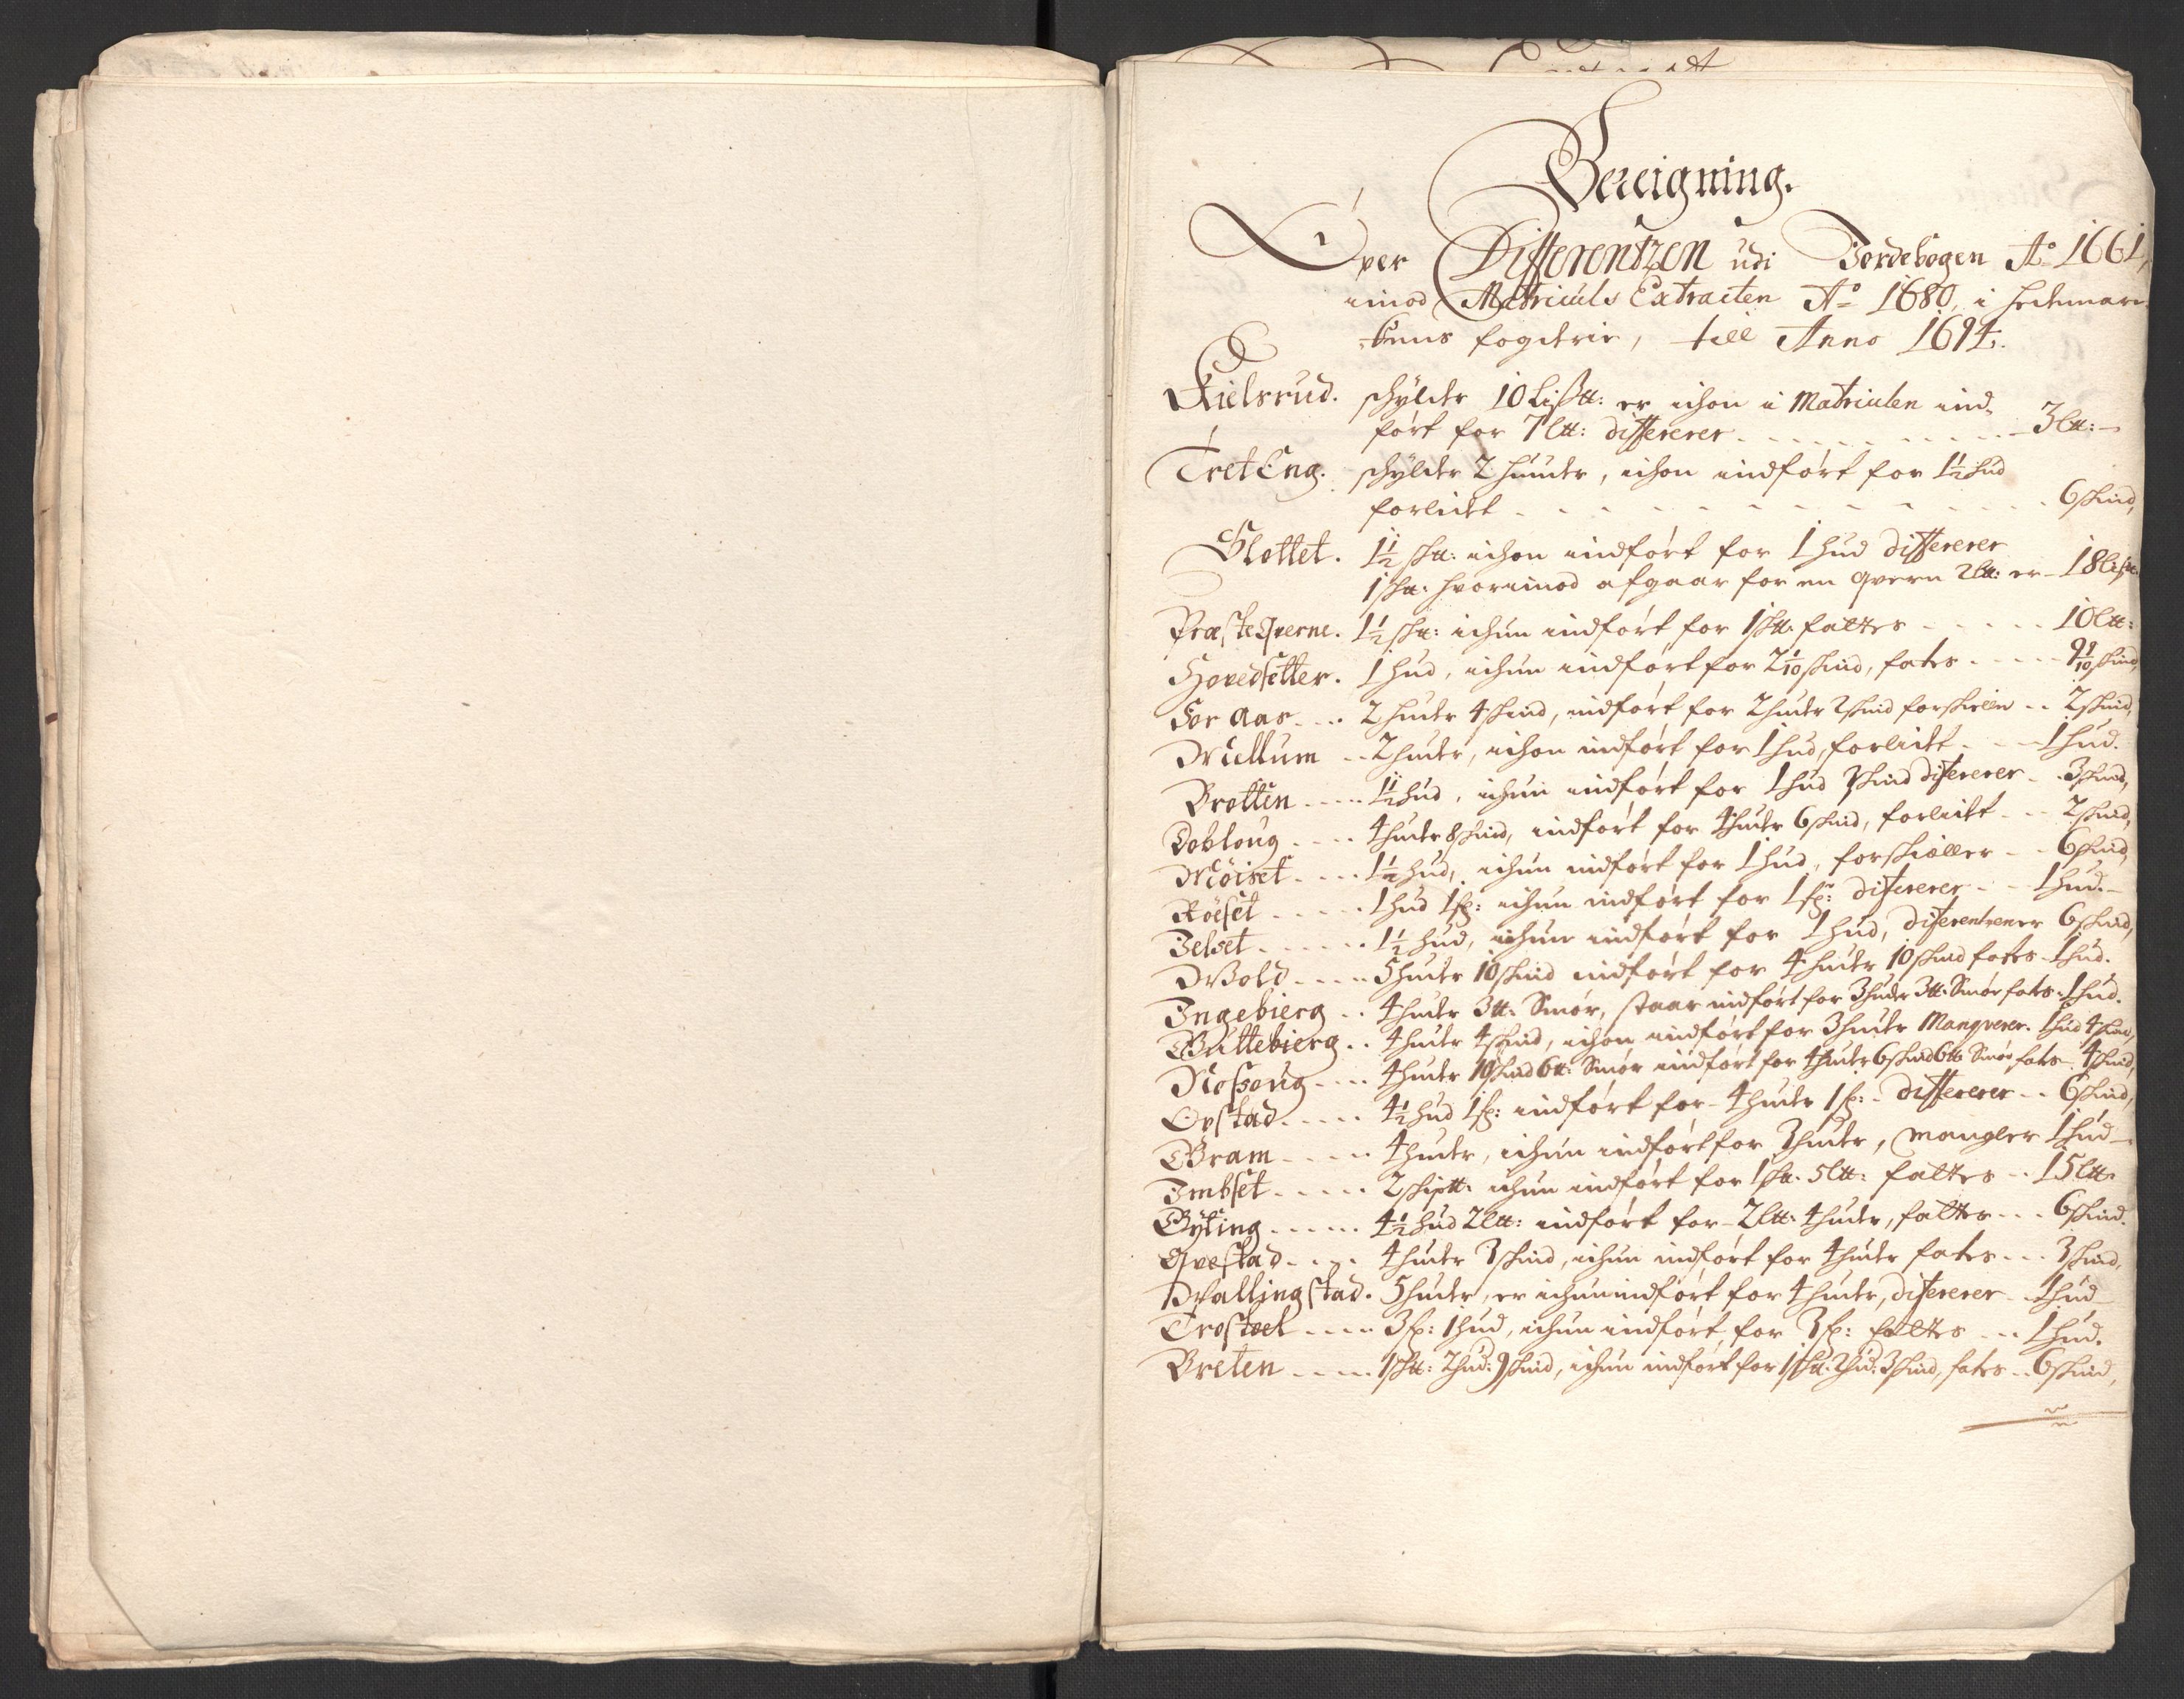 Bereigning.
Over Differentzen udi Jordebogen Ao 1661,
imod Matriculs Extracten Ao 1680, i Hedemar-
kens fogderie, till Anno 1694.
Kielsrud. schylder 10 Lißtt: er ichon i Matriculen ind-
ført for 7 ltt: differerer - - - 3 ltt:
TretEng. schylder 2 huuder, ichon indført for 1½ hud
forliist - - - 6 skind,
Slottet. 1½ sktt: ichon indført for 1 hud differerer
1 sktt: hvorimod afgaar for en qvern 2 ltt: er - 18 Lißtt.
PræsteQverne. 1½ sktt: ichun indført for 1 sktt. fattes - - - 10 ltt:
Hovedsetter. 1 hud, ichun indført for 2 1/10 skind, fates - - - 9 9/10 skind,
Sør Aas - - 2 huder 4 skind, indført for 2 huder 2 skind forskiellen - - 2 skind,
Mellum - - 2 huder, ichon indført for 1 hud, forliist - - - 1 hud.
Brotten - - - 1½ hud, ichun indført for 1 hud 3 skind differerer - - 3 skind,
Dobloug - - - 4 huder 8 skind, indført for 4 huder 6 skind, forliist - - - 2 skind,
Möiset - - - 1½ hud, ichun indført for 1 hud, forskiæller - - 6 skind,
Röeset - - - 1 hud 1 sp: ichun indført for 1 sp: differerer - - - 1 hud.
Jelset - - - 1½ hud, ichun indført for 1 hud, differentzen er 6 skind,
Wold - - - 5 huder 10 skind indført for 4 huder 10 skind fates - 1 hud.
Ingebierg - - 4 huder 3 tt. Smør, staar indført for 3 huder 3 tt. Smør fates - 1 hud.
Guttebierg - - 4 huder 4 skind, ichon indført for 3 huder Manqverer. 1 hud 4 skind,
Neßoug - - - 4 huder 10 skind 6 tt: Smør indført for 4 huder 6 skind 6 tt Smør fates - 4 skind,
Opstad - - - 4½ hud 1 sp: indført for 4 huder 1 sp: - differerer - - 6 skind,
Gram - - - 4 huder, ichun indført for 3 huder, mangler 1 hud
Imbset - - - 2 skiptt. ichun indført for 1 sktt. 5 ltt: fattes - - 15 ltt.
Gyling - - - 4½ hud 2 ltt: indført for - 2 ltt. 4 huder, fattes - - - 6 skind.
Qvestad - - - 4 huder 3 skind, ichun indført for 4 huder fates - - - 3 skind,
Wallingstad. 5 huder, er ichun indført for 4 huder, differerer - 1 hud
Trostvel - - - 3 sp: 1 hud, ichun indført for 3 sp: fattes - - - 1 hud.
Breten - - - 1 sktt: 2 hud: 9 skind, ichun indført for 1 sktt. 2 hud: 3 skind, fates - - 6 skind,